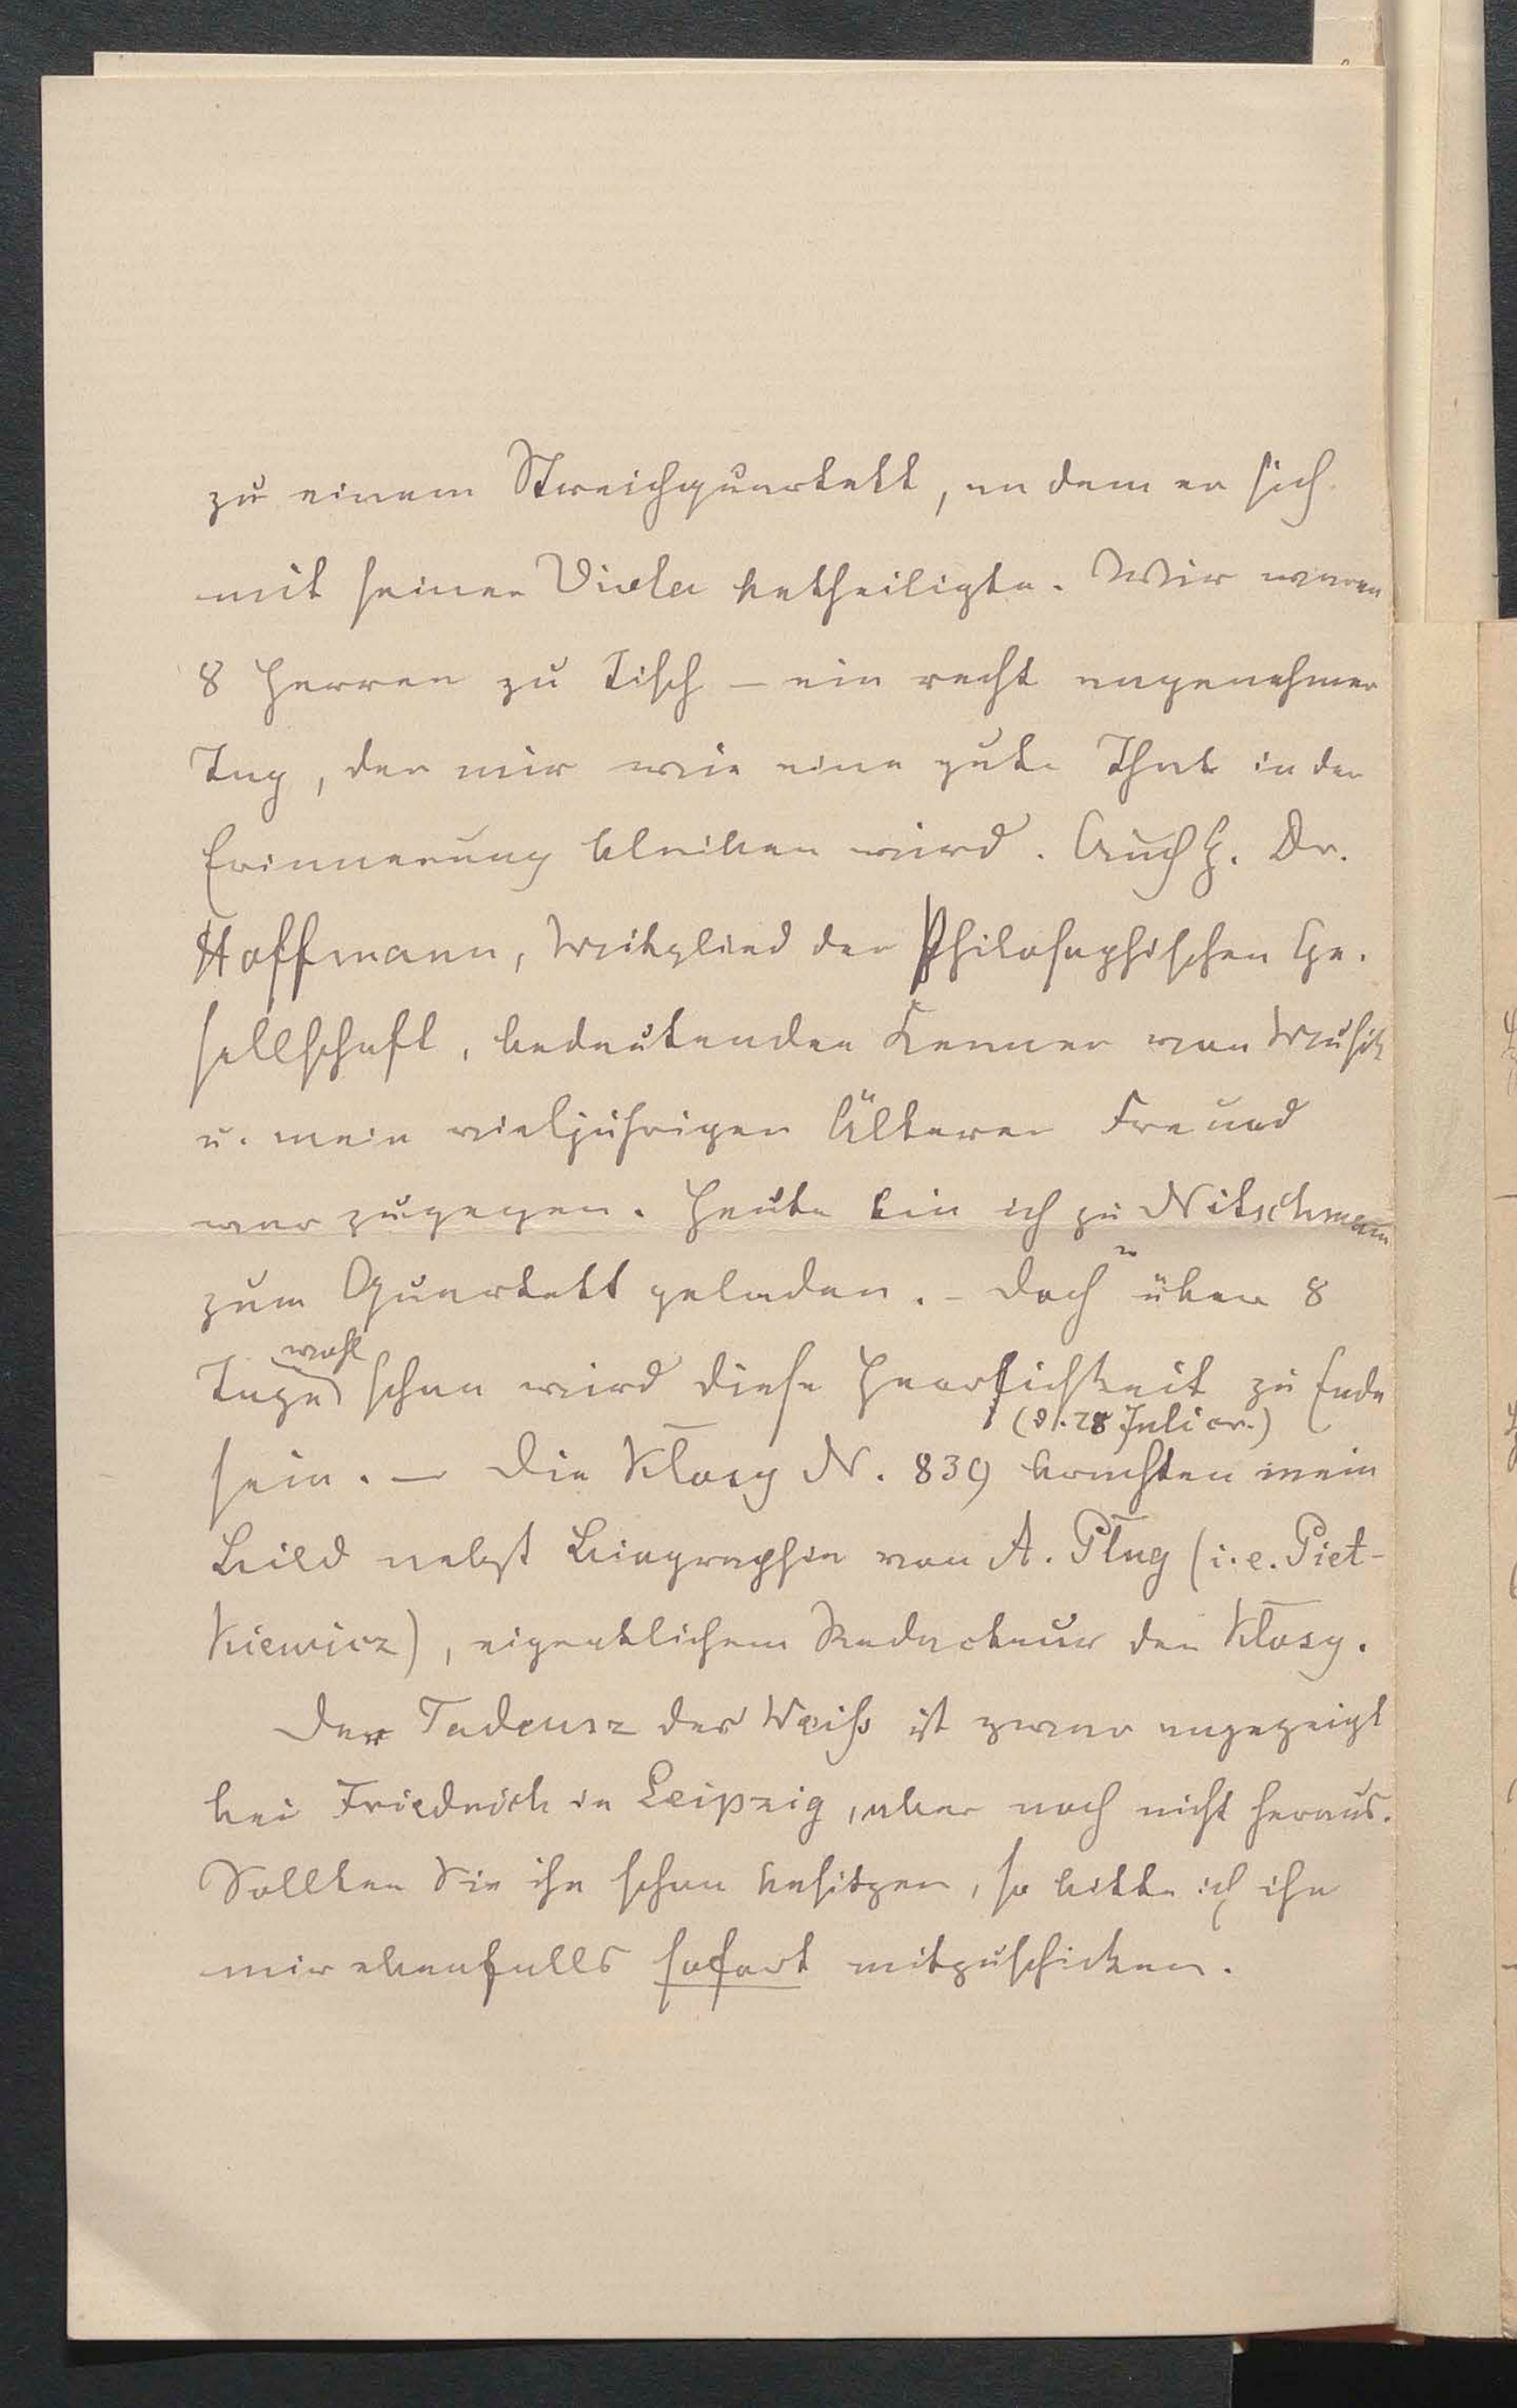 zu einem Streichquartett, an dem er sich
mit seiner Viola betheiligte. Wir waren
8 Herren zu Tisch – ein recht angenehmer
Tag, der mir wie eine gute That in der
Erinnerung bleiben wird. Auch H. Dr.
Hoffmann, Mitglied der Philosophischen Ge-
sellschaft, bedeutender Kenner von Musik
u. mein vieljähriger älterer Freund
war zugegen. Heute bin ich zu Nitschmann
zum Quartett geladen. – Doch über 8
Tage wohl schon wird diese Herrlichkeit zu Ende
sein. – Die Kłosy N. 839 (d. 28 Juli cr.) brachten mein
Bild nebst Biographie von A. Pług (i.e. Piet-
kiewicz), eigentlichem Redacteur der Kłosy.
Der Tadeusz des Weiß ist zwar angezeigt
bei Friedrich in Leipzig, aber noch nicht heraus.
Sollten Sie ihn schon besitzen, so bitte ich ihn
mir ebenfalls sofort mitzuschicken.